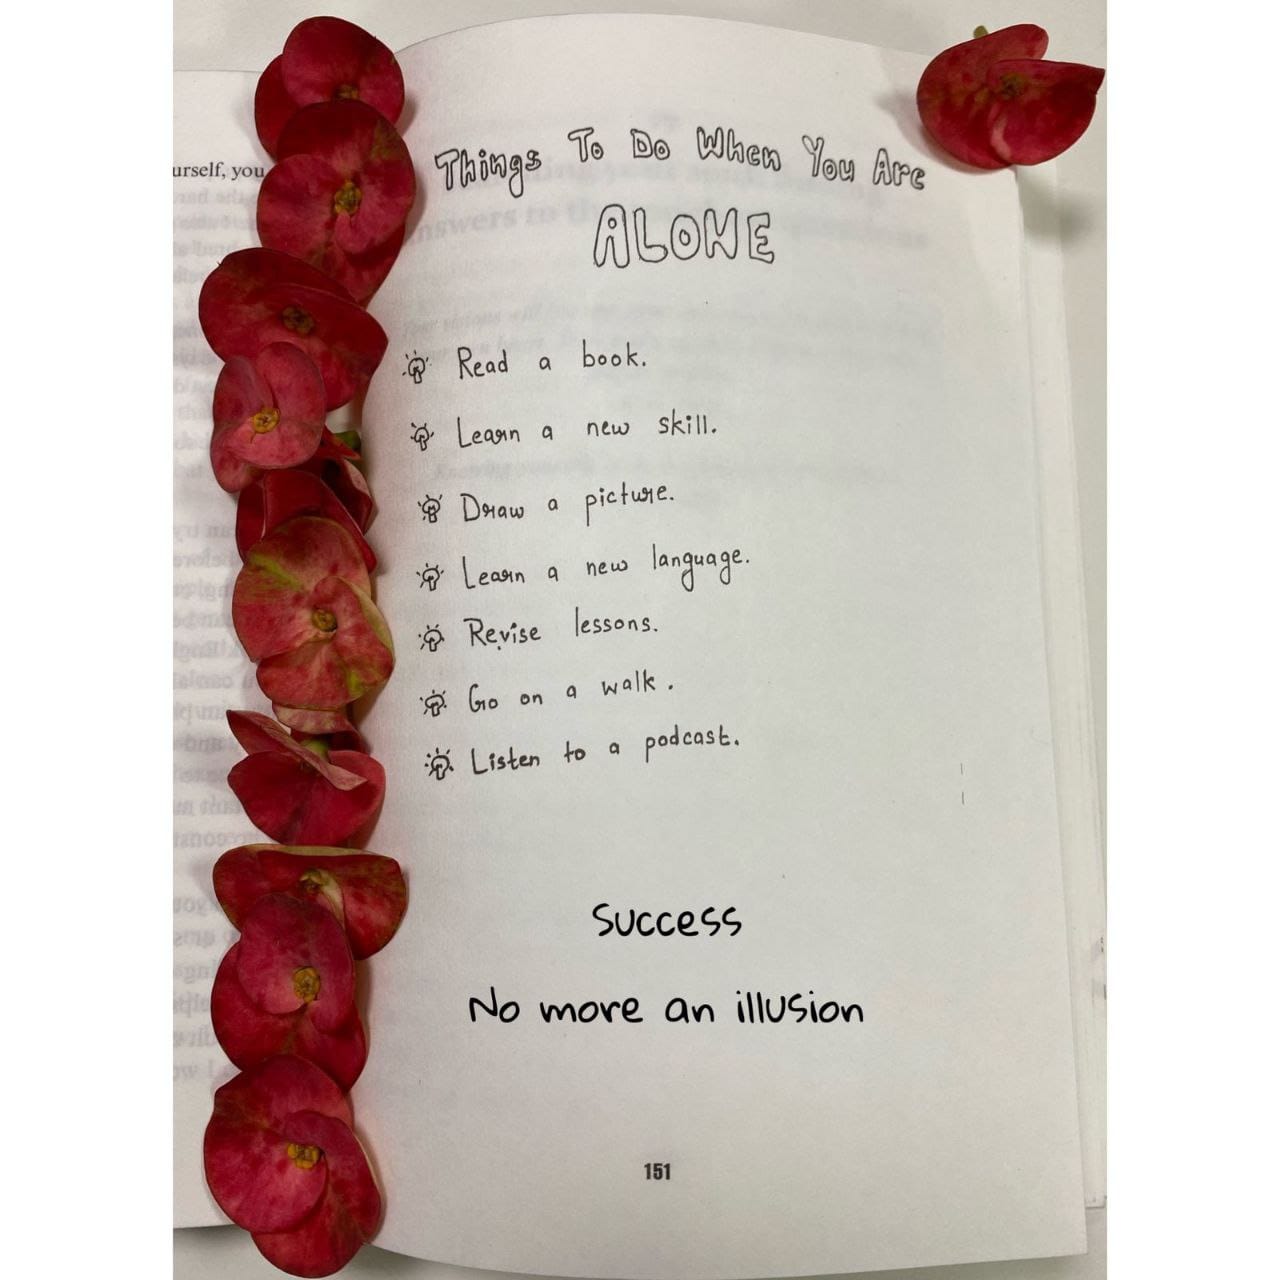 urself, you
Things To Do When You Are
ALONE
Read a book.
Learn a new skill.
Draw a picture.
Learn a new language.
Revise lessons.
Go on a walk.
Listen to a podcast.
Success
No more an illusion
151